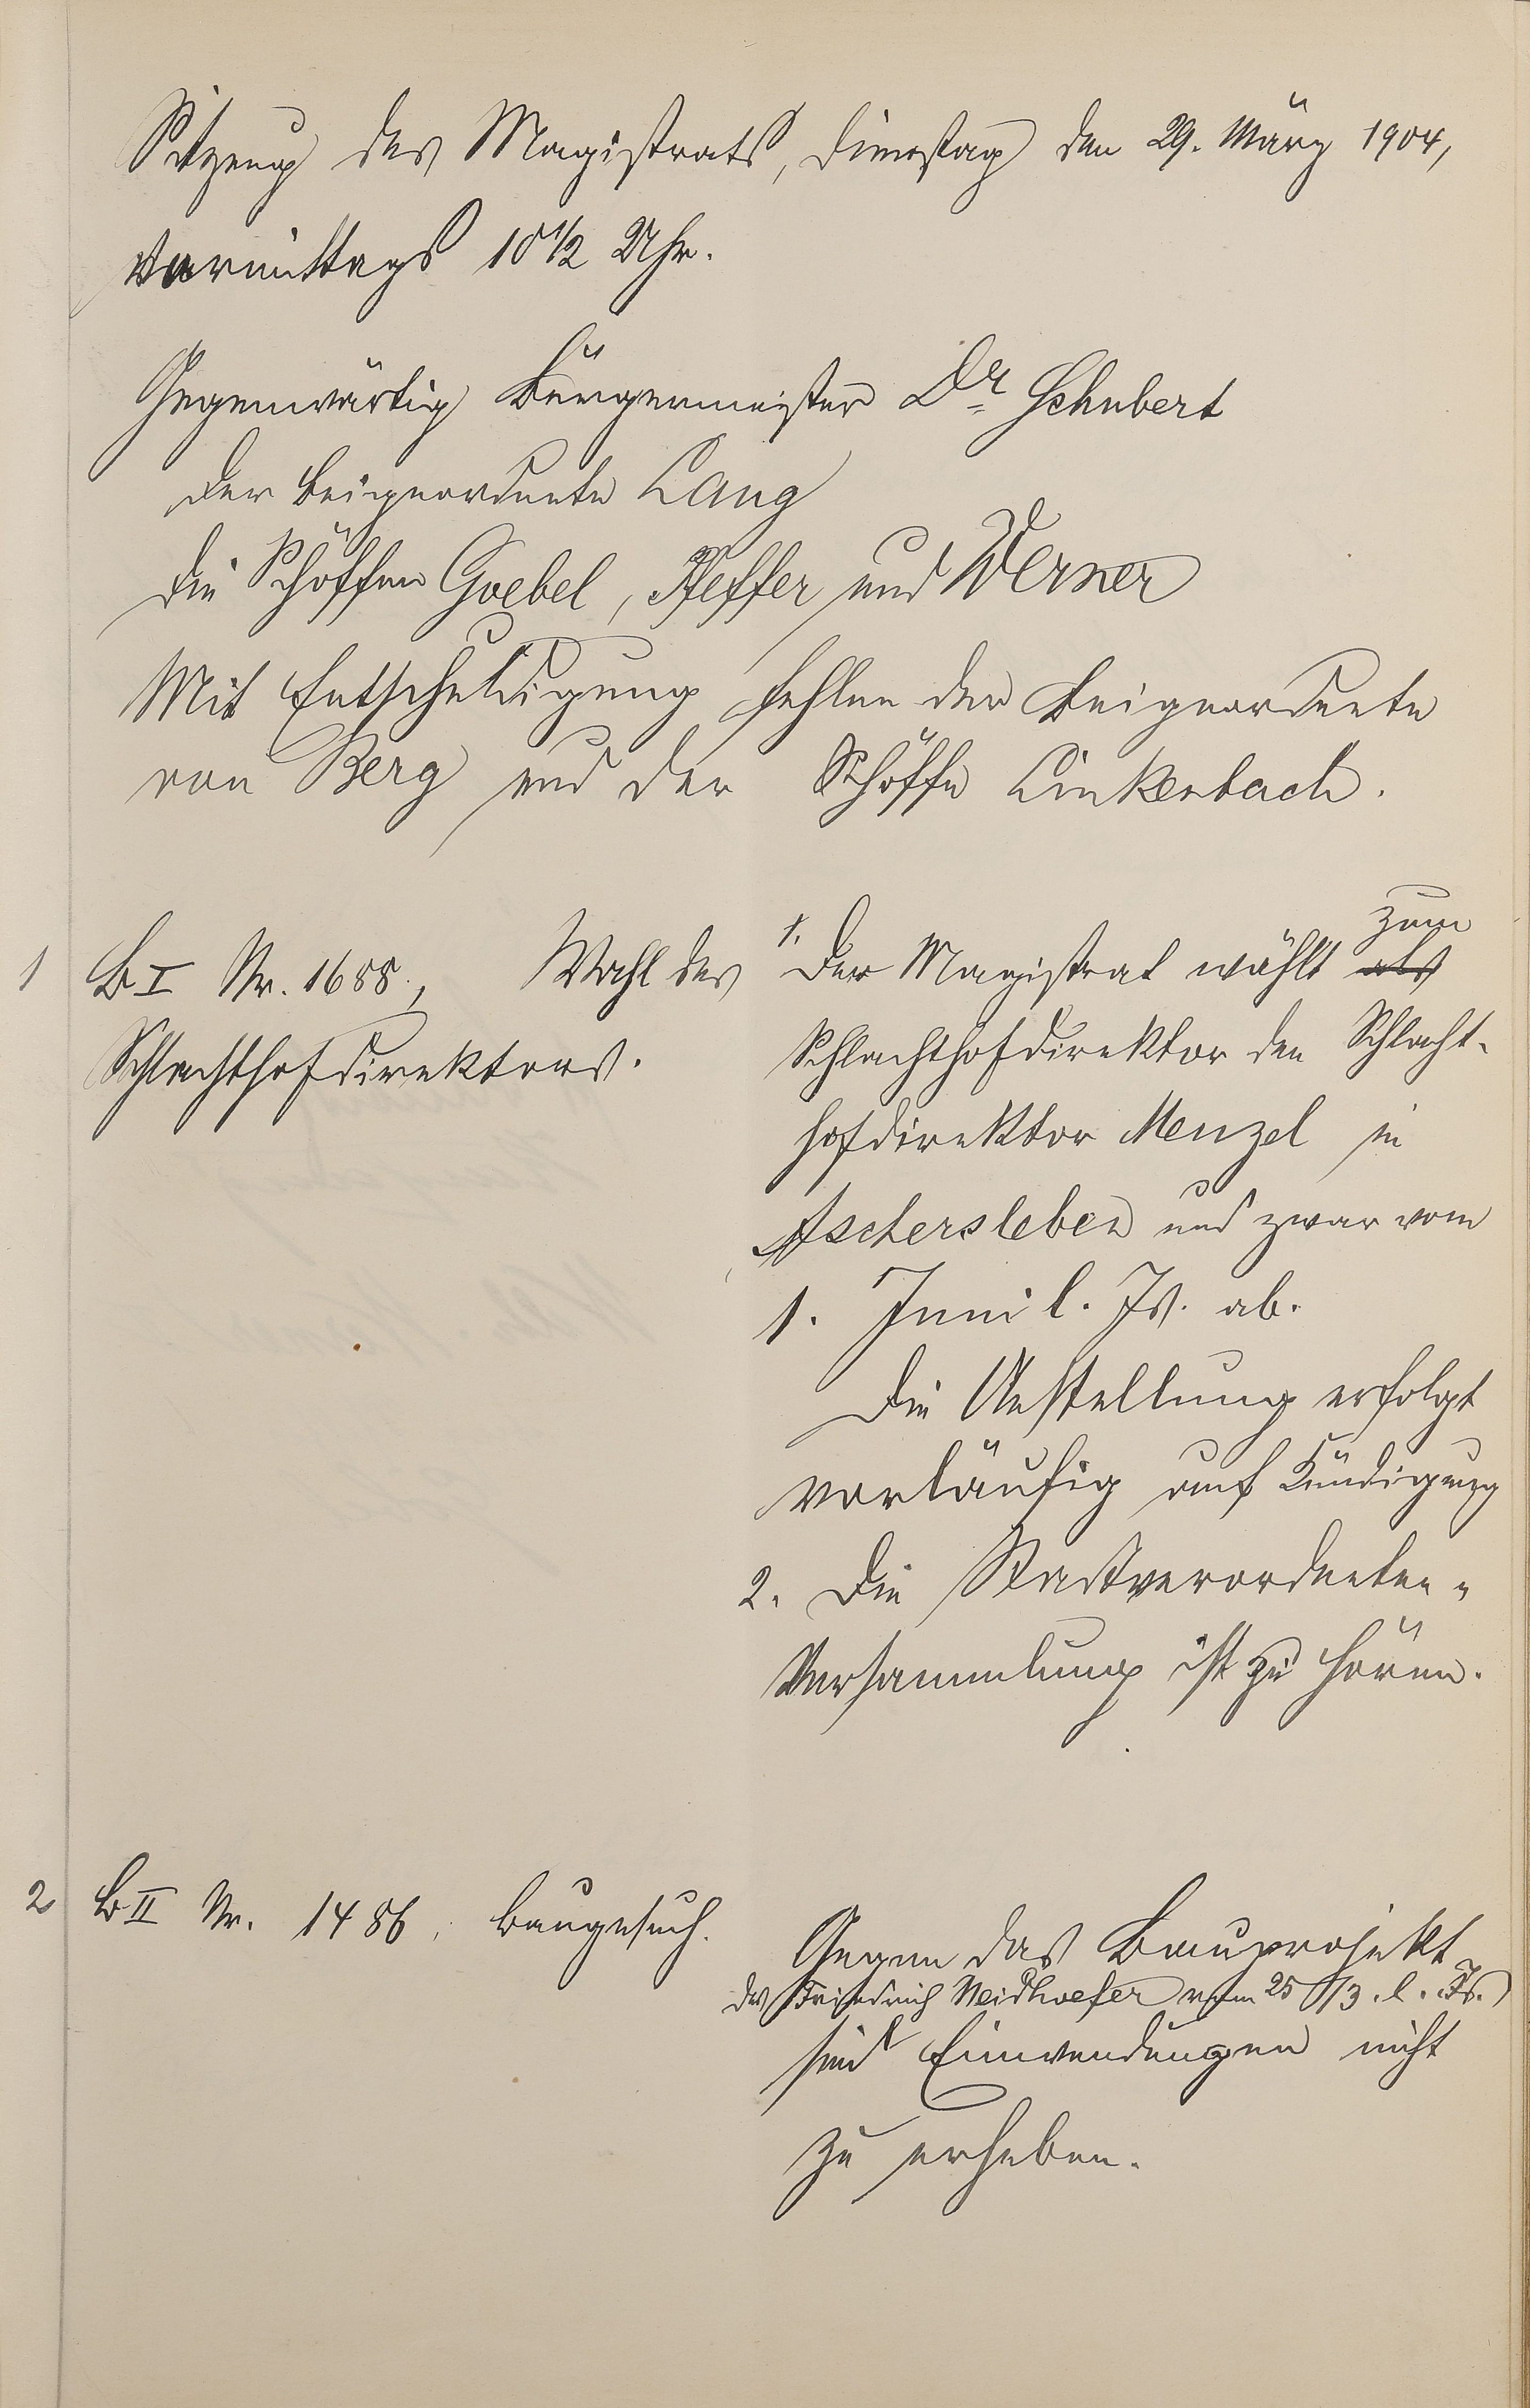 Sitzung des Magistrats, Dienstag den 29. März 1904,
Vormittags 10 1/2 Uhr.
Gegenwärtig Bürgermeister Dr. Schubert
der Beigeordnete Lang
die Schöffen Goebel, Pfeffer und Werner
Mit Entschuldigung fehlen der Beigeordnete
von Berg und der Schöffe Linkenbach.
1 B I Nr. 1688, Wahl des
Schlachthofdirektors.
zum
1. Der Magistrat wählt als
Schlachthofdirektor den Schlacht-
hofdirektor Menzel in
Aschersleben und zwar vom
1. Juni l. Js. ab.
Die Anstellung erfolgt
vorläufig auf Kündigung
2. Die Stadtverordneten-
Versammlung ist zu hören.
2 B II Nr. 1486, Baugesuch.
Gegen das Bauprojekt
des Friedrich Neidhoefer vom 25/3. l. Js.
sind Einwendungen nicht
zu erheben.